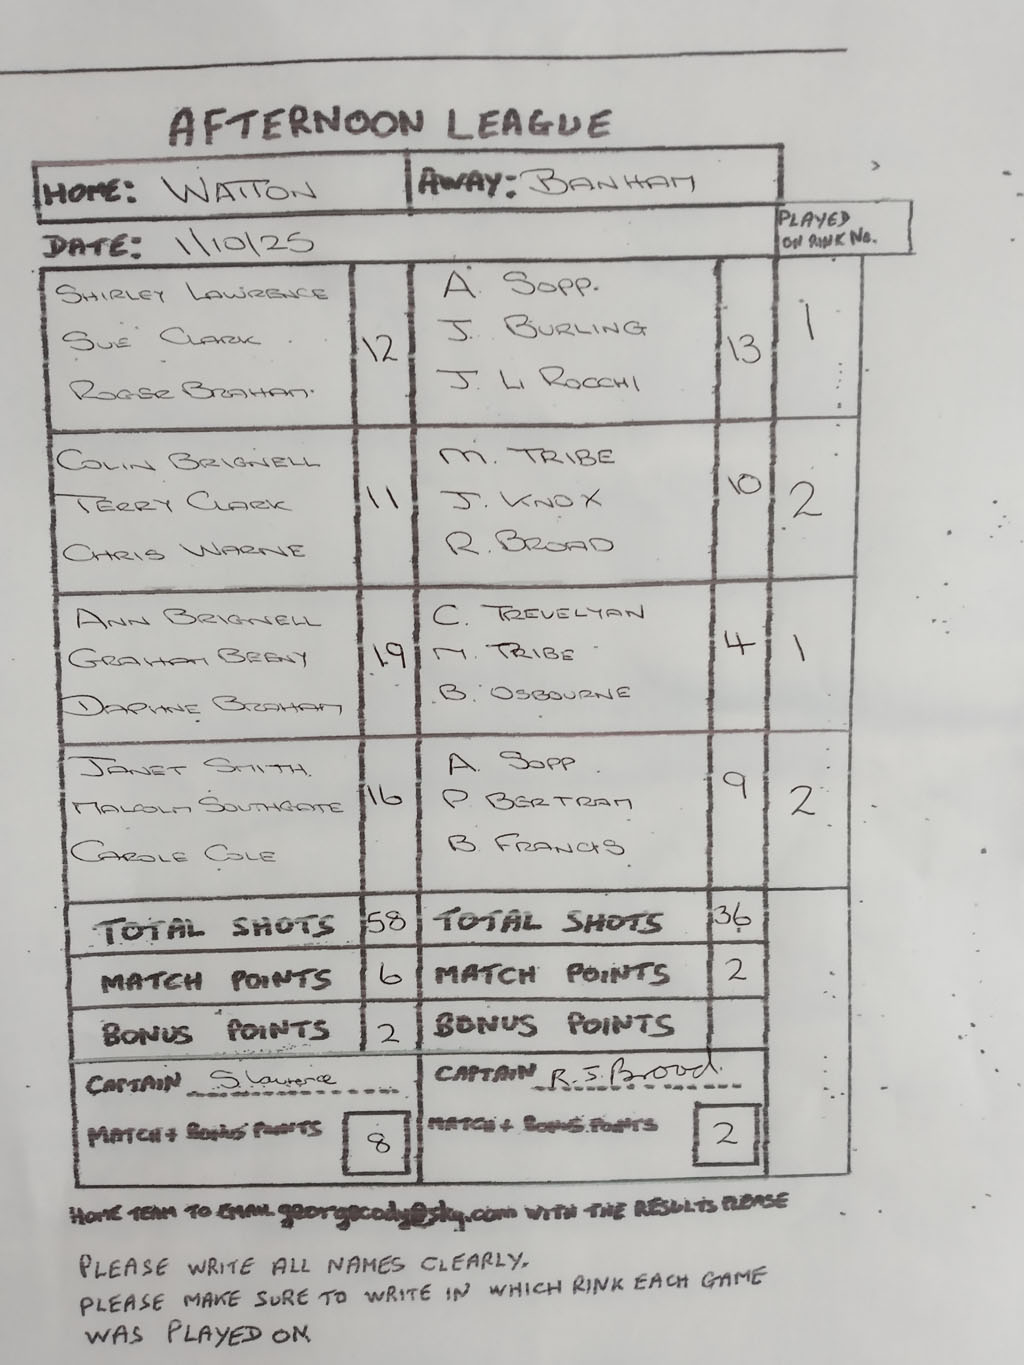 AFTERNOON LEAGUE
HOME: WATTON AWAY: BANHAM
DATE: 1/10/25 PLAYED ON RINK No.
SHIRLEY LAWRENCE A. SOPP.
SUE CLARK 12 J. BURLING 13 1
ROGER BRAHAM. J. LI ROCCHI
COLIN BRIGNELL M. TRIBE
TERRY CLARK 11 J. KNOX 10 2
CHRIS WARNE R. BROAD
ANN BRIGNELL C. TREVELYAN
GRAHAM BEENY 19 M. TRIBE 4 1
DAPHNE BRAHAM B. OSBOURNE
JANET SMITH. A. SOPP.
MALCOLM SOUTHGATE 16 P. BERTRAM 9 2
CAROLE COLE B. FRANCIS
TOTAL SHOTS 58 TOTAL SHOTS 36
MATCH POINTS 6 MATCH POINTS 2
BONUS POINTS 2 BONUS POINTS
CAPTAIN S Lawrence CAPTAIN R. J. Broad.
MATCH + BONUS POINTS 8 MATCH + BONUS POINTS 2
HOME TEAM TO EMAIL georgecody@sky.com WITH THE RESULTS PLEASE
PLEASE WRITE ALL NAMES CLEARLY.
PLEASE MAKE SURE TO WRITE IN WHICH RINK EACH GAME
WAS PLAYED ON